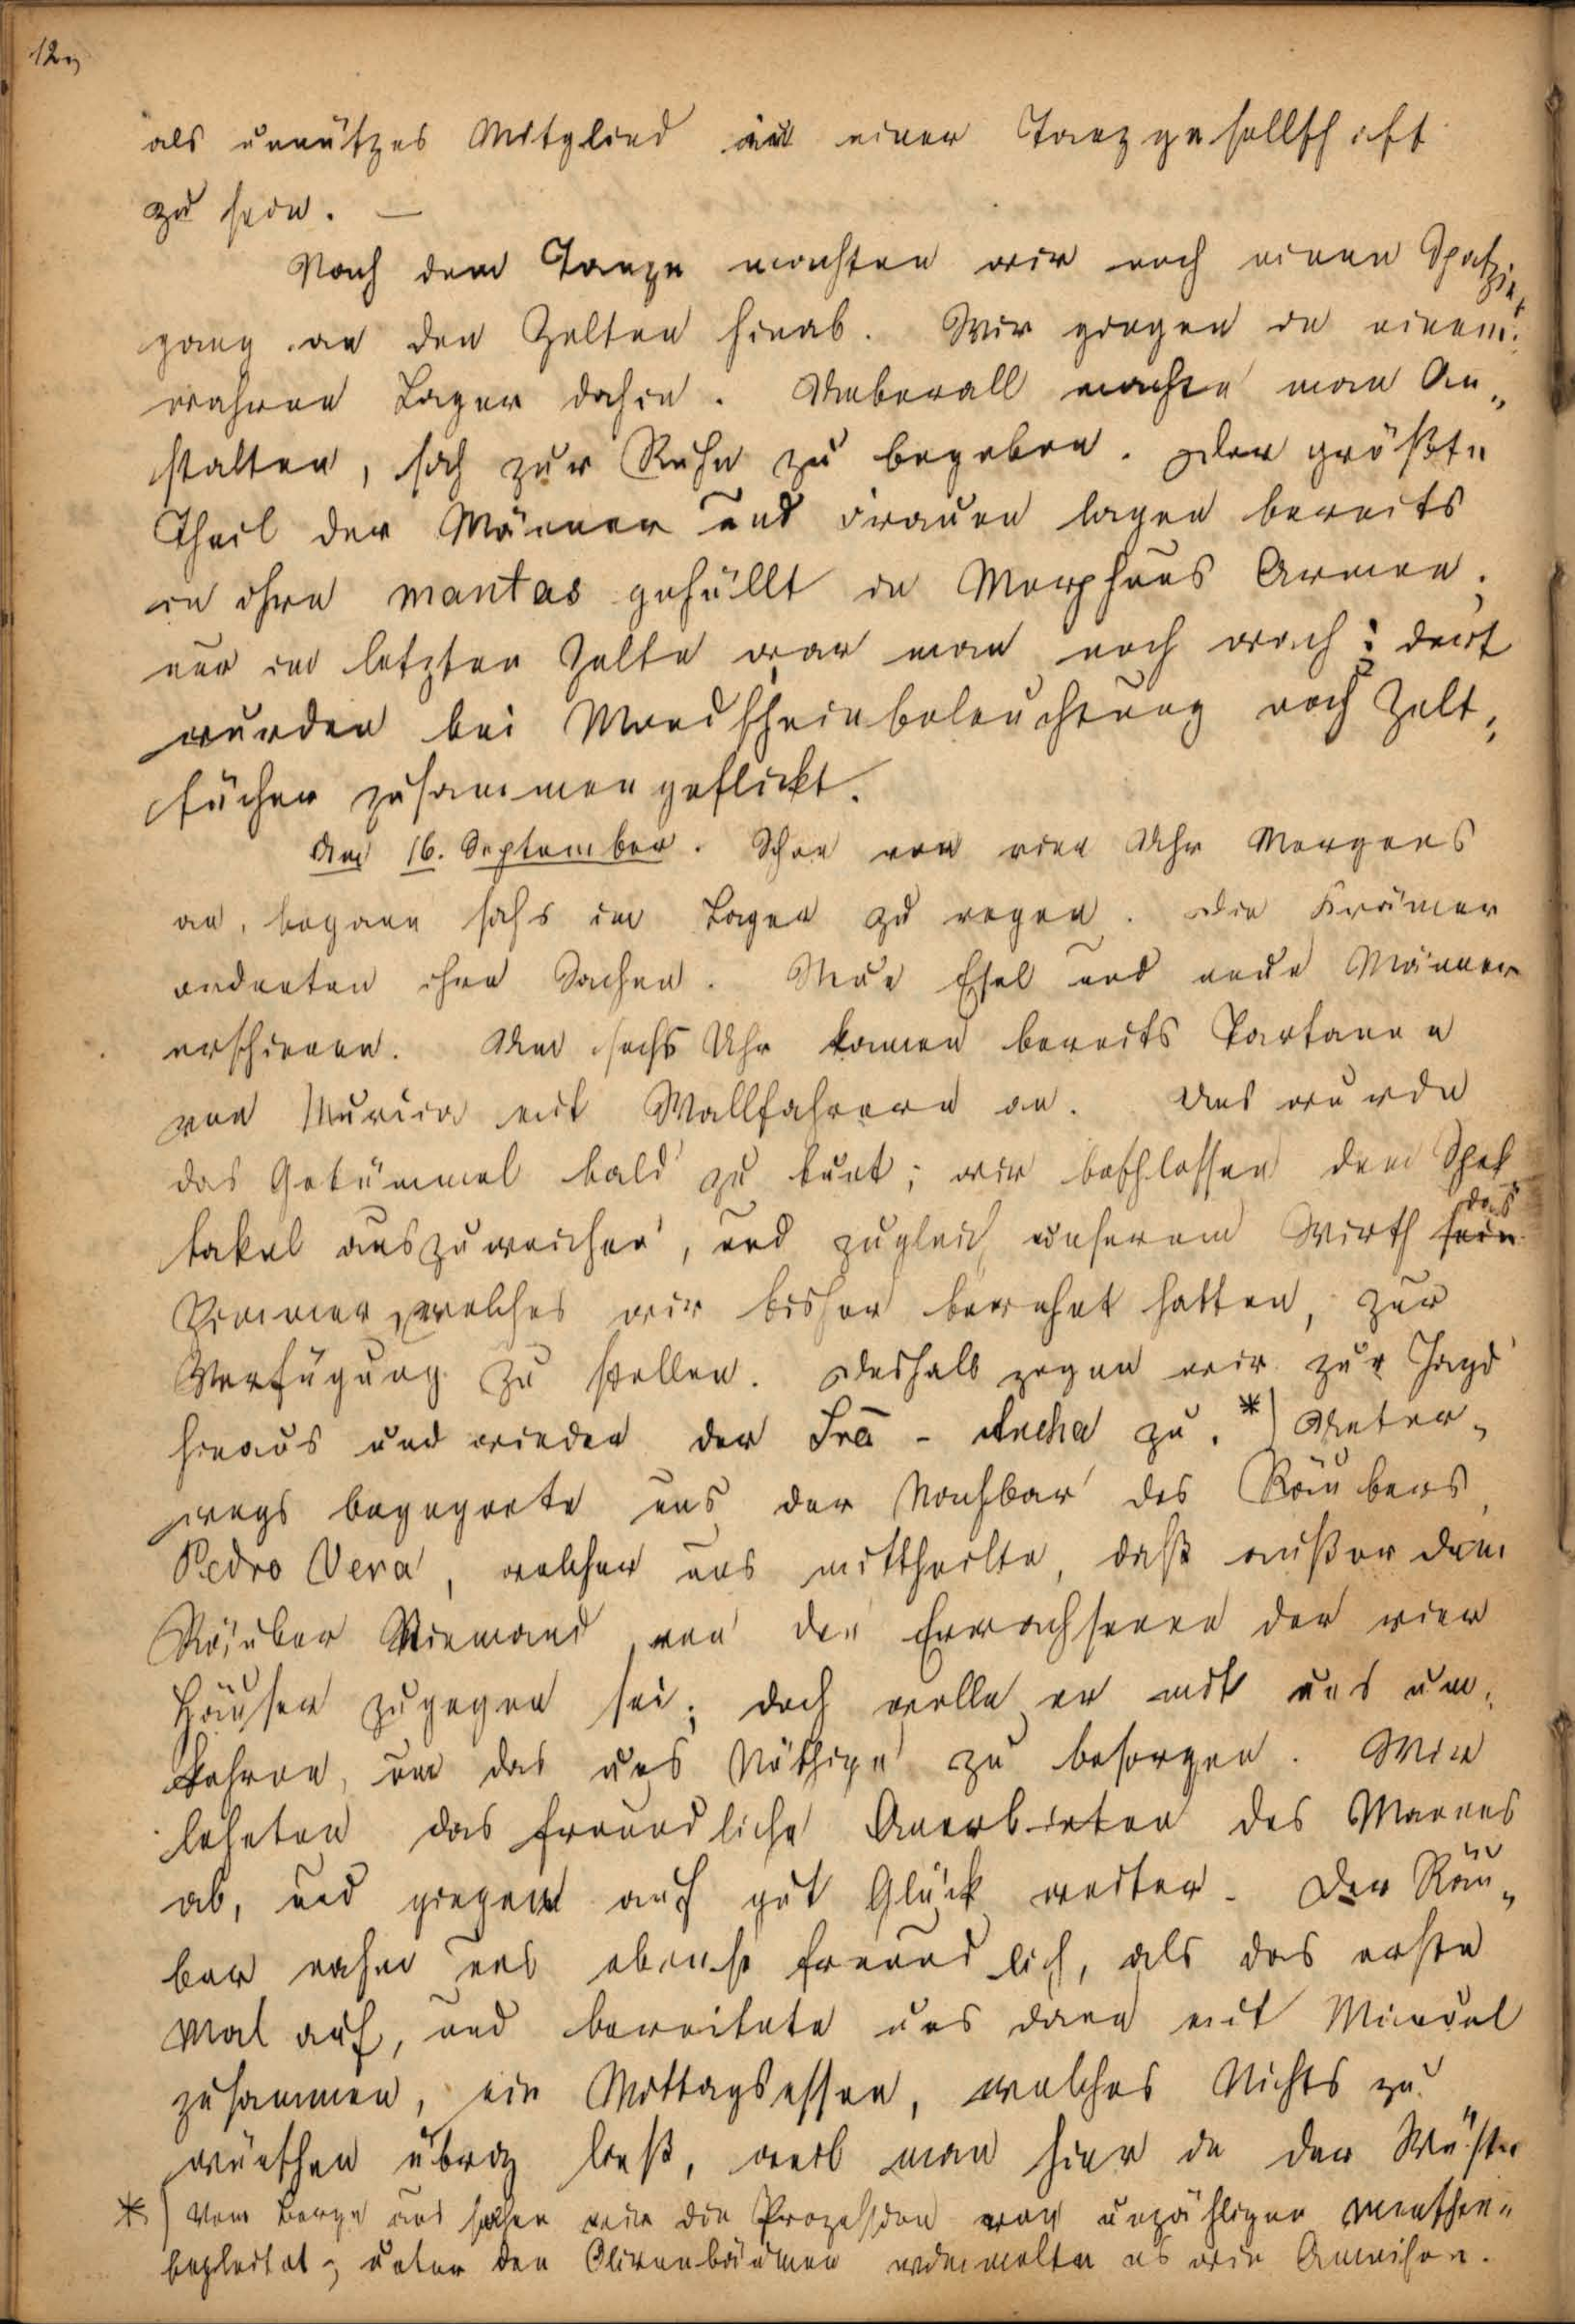 12
als unnützes Mitglied in einer Tanzgesellschaft
zu sein. —
Nach dem Tanze machten wir noch einen Spazier
gang an den Zelten hinab. Wir gingen in einem
wahren Lager dahin. Ueberall machte man An„
stalten, sich zur Ruhe zu begeben. Der größte
Theil der Männer und Frauen lagen bereits
in ihre mantas gehüllt in Morpheus Armen;
nur im letzten Zelte war man noch wach: dort
wurden bei Mondscheinbeleuchtung noch Zelt„
tücher zusammengeflickt.
Am 16. September. Schon von vier Uhr Morgens
an, begann sichs im Lager zu regen. Die Krämer
ordneten ihre Sachen. Neue Esel und neue Männer
erschienen. Um sechs Uhr kamen bereits Tartanen
von Murcia mit Wallfahrern an. Uns wurde
das Getümmel bald zu bunt; wir beschlossen dem Spek
takel auszuweichen, und zugleich unserem Wirth sein das
Zimmer, welches wir bisher bewohnt hatten, zur
Verfügung zu stellen. Deshalb zogen wir zur Jagd
hinaus und wieder der Fra - Ancha zu. *) Unter„
wegs begegnete uns der Nachbar des Räubers
Pedro Vera, welcher uns mittheilte, daß außer dem
Räuber Niemand von den Erwachsenen der vier
Häuser zugegen sei; doch wolle er mit uns um„
kehren, um das uns Nöthige zu besorgen. Wir
lehnten das freundliche Anerbieten des Mannes
ab, und gingen auf gut Glück weiter. Der Räu„
ber nahm uns ebenso freundlich, als das erste
Mal auf, und bereitete uns dann mit Miguel
zusammen, ein Mittagsessen, welches Nichts zu
wünschen übrig ließ, weil man hier in der Wüste
*) Vom Berge aus sahen wir die Prozession von unzähligen Menschen
begleitet; unter den Olivenbäumen wimmelte es wie Ameisen.